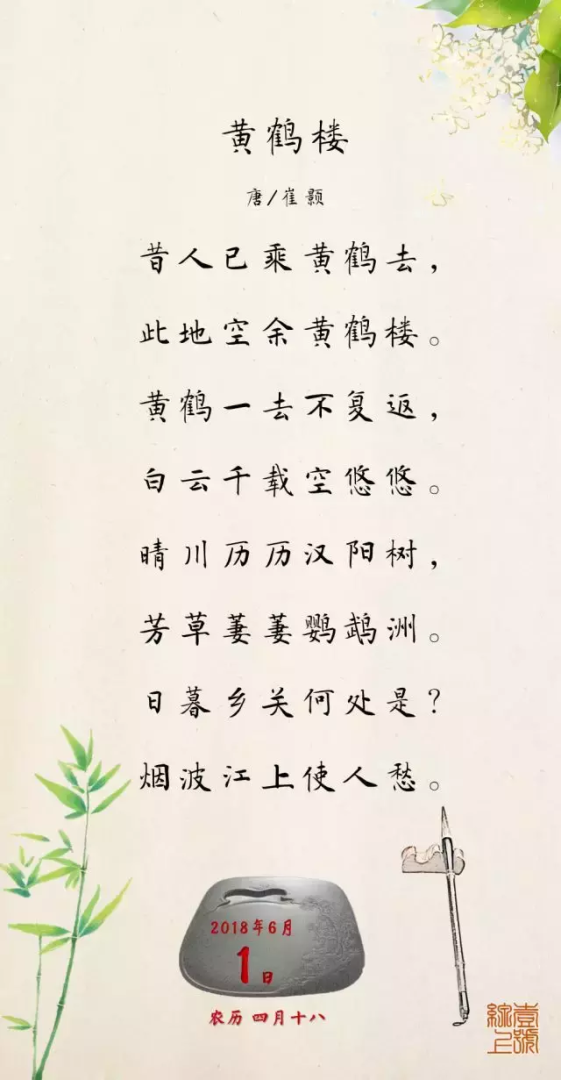 黄鹤楼
唐/崔颢
昔人已乘黄鹤去，
此地空余黄鹤楼。
黄鹤一去不复返，
白云千载空悠悠。
晴川历历汉阳树，
芳草萋萋鹦鹉洲。
日暮乡关何处是？
烟波江上使人愁。
2018年6月
1日
农历 四月十八
壹號